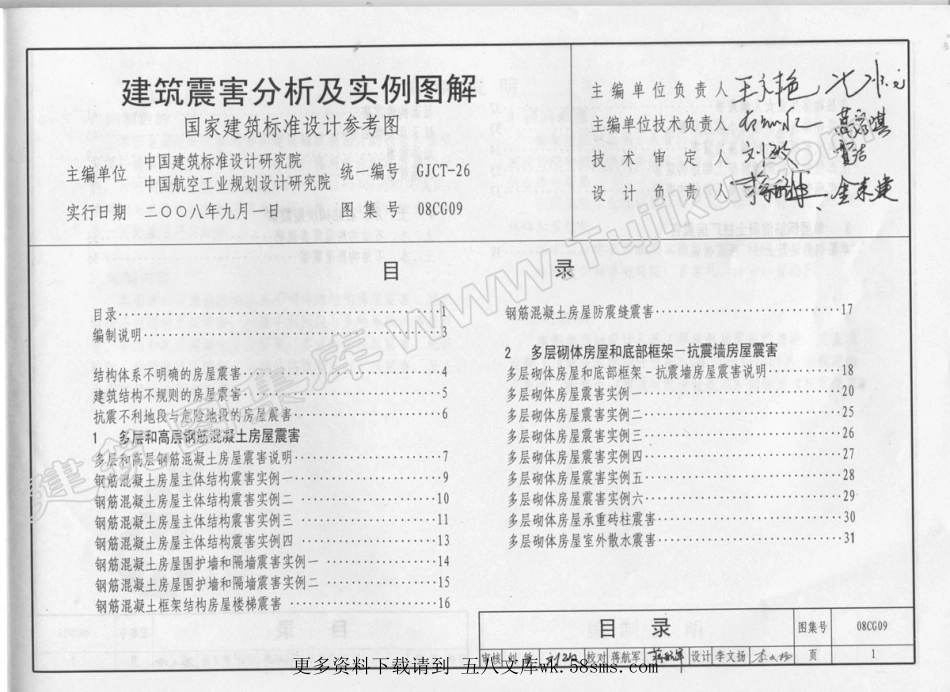 建筑震害分析及实例图解
国家建筑标准设计参考图
主编单位 中国建筑标准设计研究院
中国航空工业规划设计研究院
统一编号 GJCT-26
实行日期 二〇〇八年九月一日 图集号 08CG09
主编单位负责人
主编单位技术负责人
技术审定人
设计负责人
目 录
目录……1
编制说明……3
结构体系不明确的房屋震害……4
建筑结构不规则的房屋震害……5
抗震不利地段与危险地段的房屋震害……6
1 多层和高层钢筋混凝土房屋震害
多层和高层钢筋混凝土房屋震害说明……7
钢筋混凝土房屋主体结构震害实例一……9
钢筋混凝土房屋主体结构震害实例二……10
钢筋混凝土房屋主体结构震害实例三……11
钢筋混凝土房屋主体结构震害实例四……13
钢筋混凝土房屋围护墙和隔墙震害实例一……14
钢筋混凝土房屋围护墙和隔墙震害实例二……15
钢筋混凝土框架结构房屋楼梯震害……16
钢筋混凝土房屋防震缝震害……17
2 多层砌体房屋和底部框架-抗震墙房屋震害
多层砌体房屋和底部框架-抗震墙房屋震害说明……18
多层砌体房屋震害实例一……20
多层砌体房屋震害实例二……25
多层砌体房屋震害实例三……26
多层砌体房屋震害实例四……27
多层砌体房屋震害实例五……28
多层砌体房屋震害实例六……29
多层砌体房屋承重砖柱震害……30
多层砌体房屋室外散水震害……31
目 录 图集号 08CG09
审核 刘敏 校对 蒋航军 设计 李文扬 页 1
更多资料下载请到 五八文库wk.58sms.com
建筑图集库 www.Tujiku.com